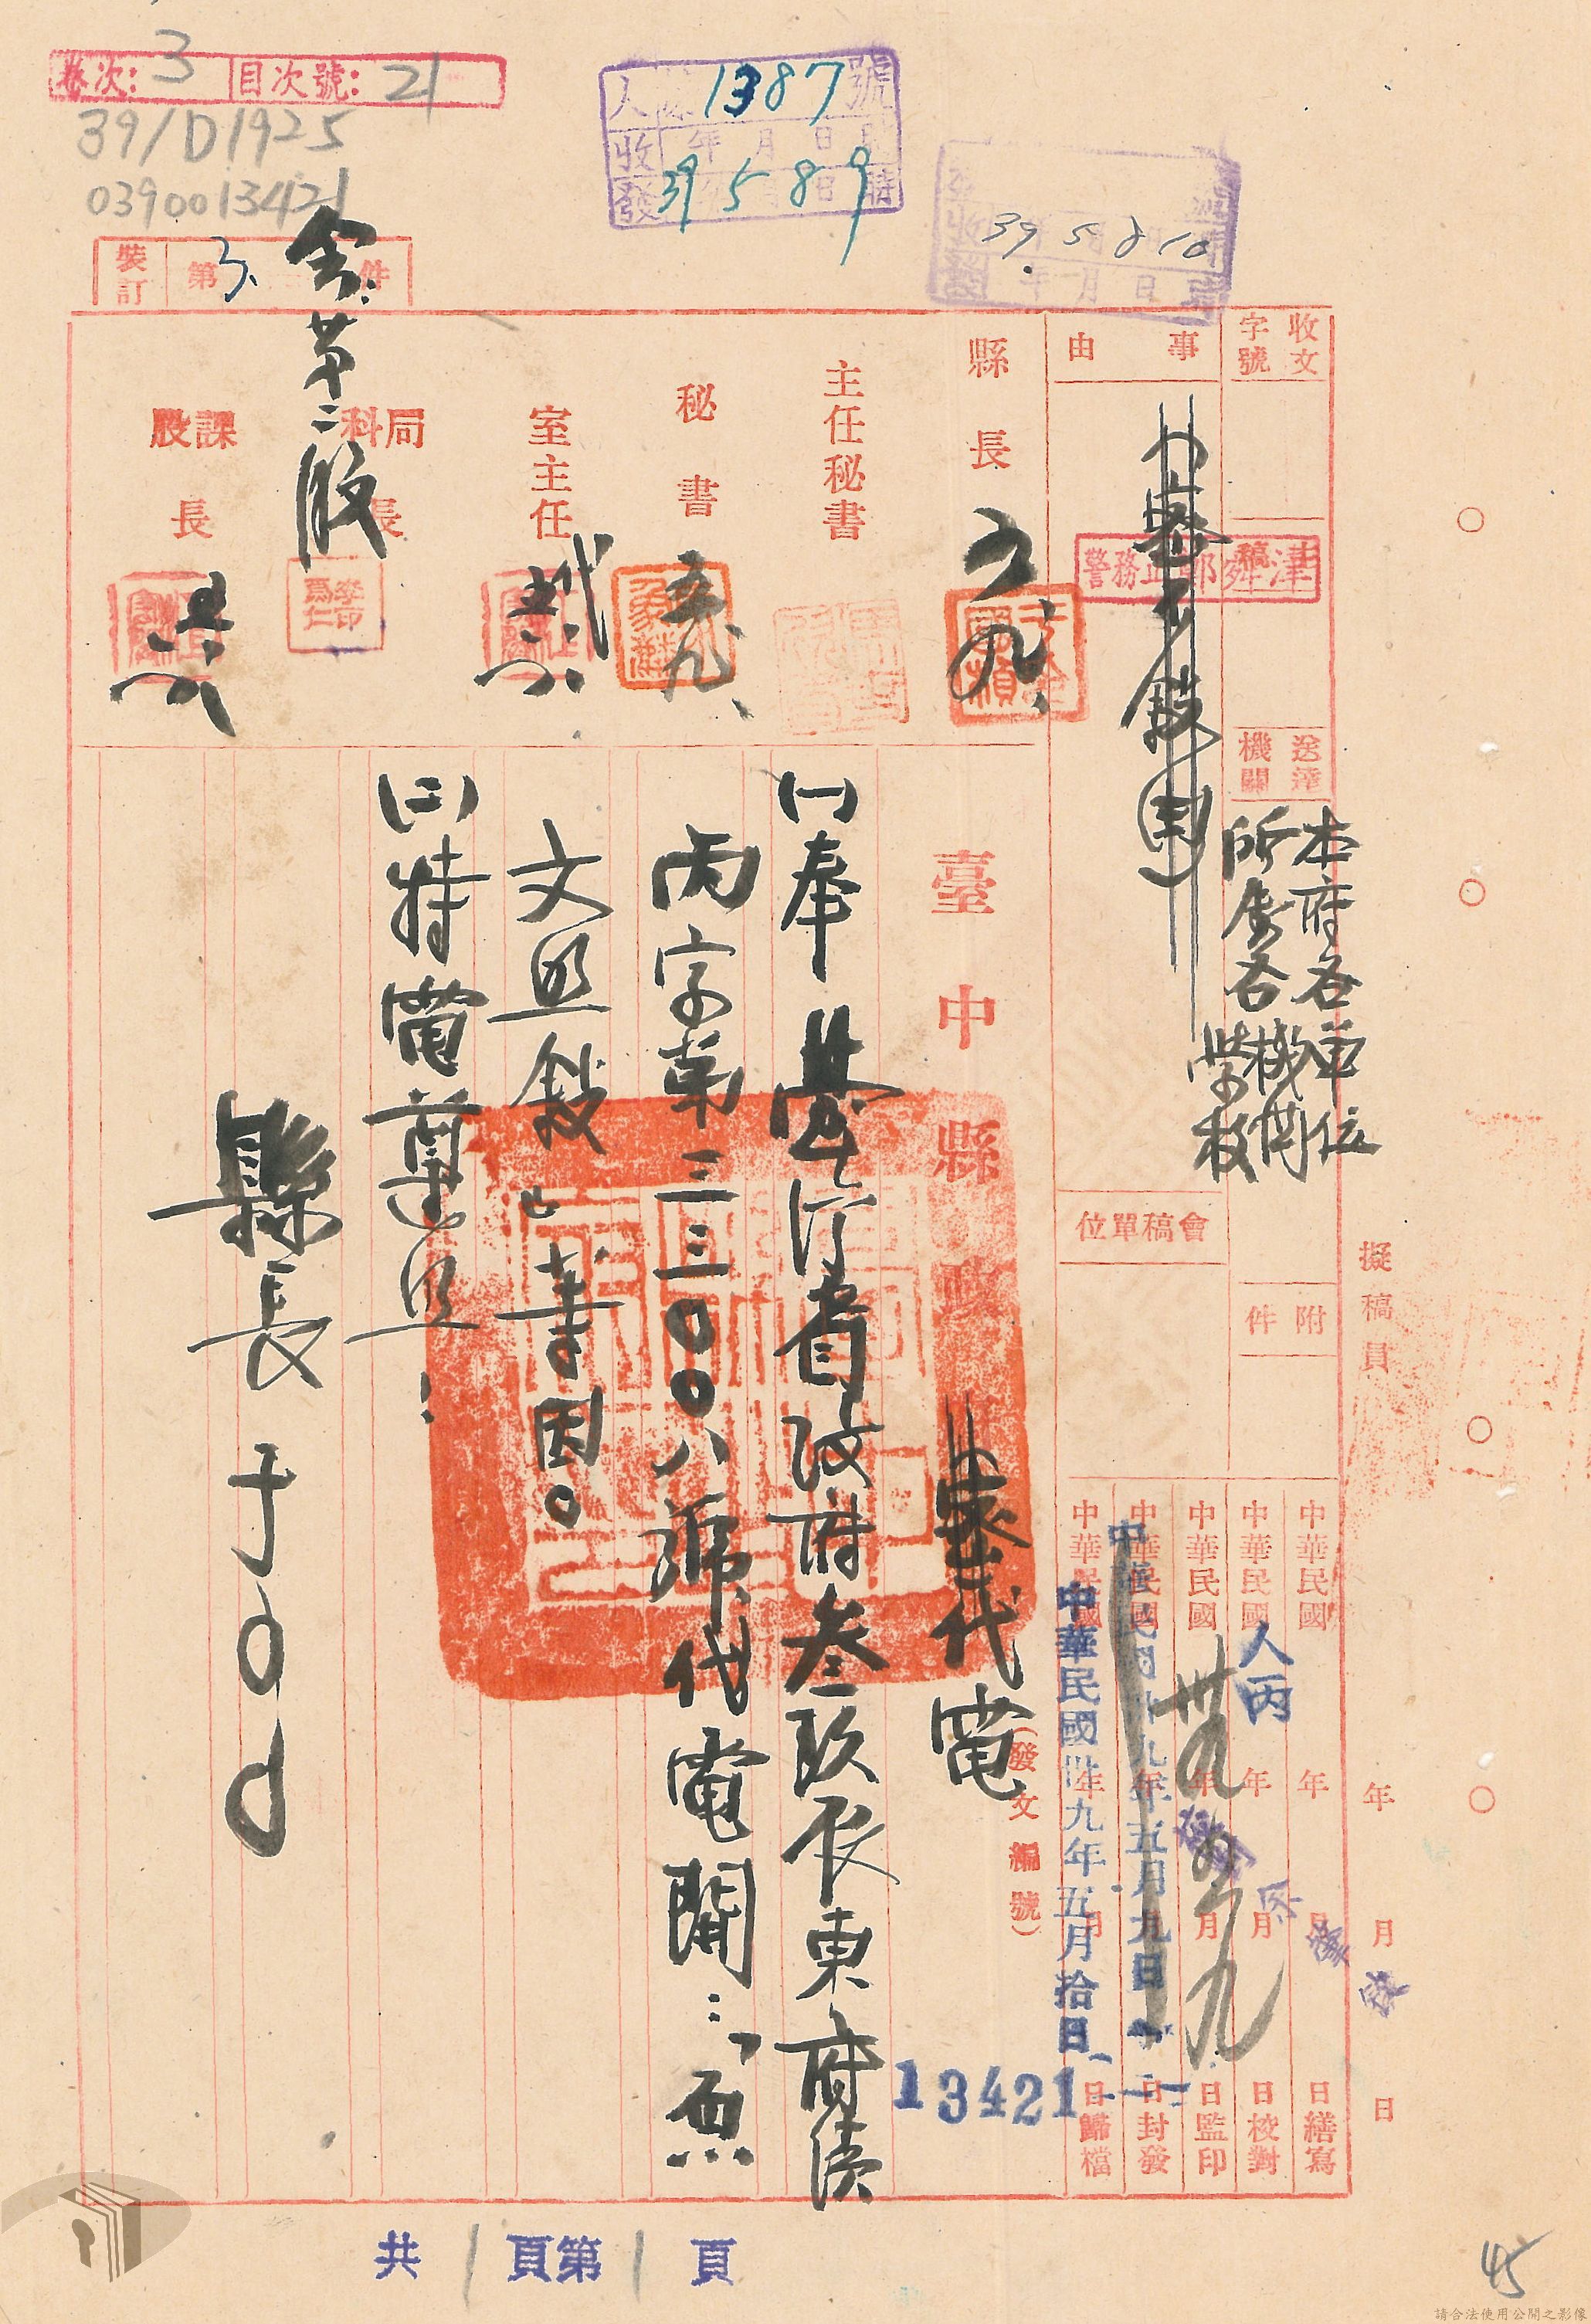 卷次:3 目次號:21
39/D1925
0390013421
裝訂 第3件
1387 號
收 年 月 日 時
發 39 5 8 9
39 5 8 10
年 月 日
會:第二股
收文字號
事由
縣長
主任秘書
秘書
室主任
局科長
課股長
五九
送達機關
本府各單位
所屬各機關
學校
會稿單位
附件
擬稿員
年 月 日
中華民國 年 月 日繕寫
中華民國 年 月 日校對
中華民國 年 月 日監印
中華民國 年 月 日封發
中華民國 年 月 日歸檔
人丙
卅九
中華民國卅九年五月九日
中華民國卅九年五月拾日
(發文編號)
13421
臺中縣政府 代電
(一)奉臺灣省政府叁玖辰東府綜
丙字第三三〇〇八號代電開:「原
文照敘」等因。
(二)特電遵照!
縣長于〇〇
共1頁第1頁
45
請合法使用公開之影像